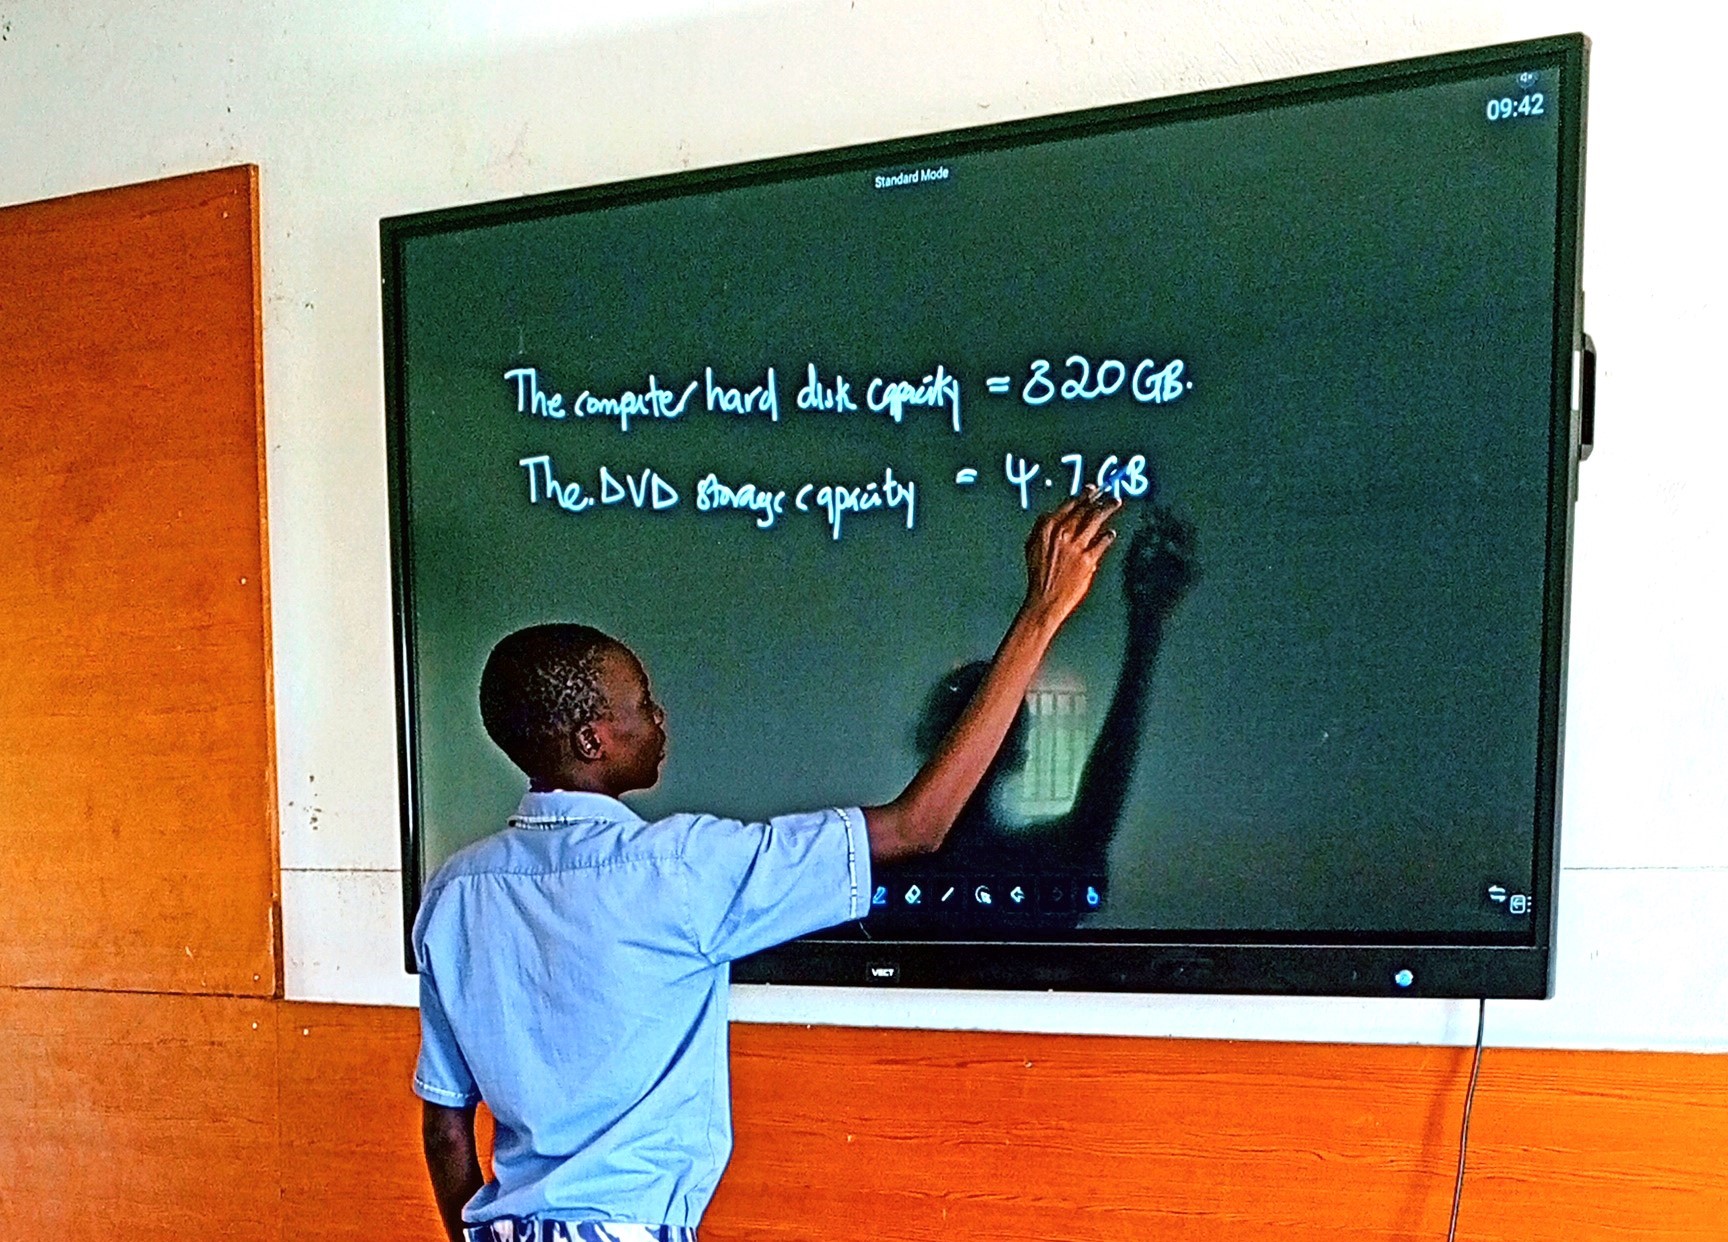 09:42
Standard Mode
The computer hard disk capacity = 320GB.
The.DVD storage capacity = 4.7GB
VECT